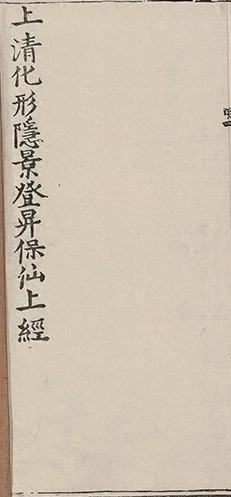 上清化形隱景登昇保仙上經